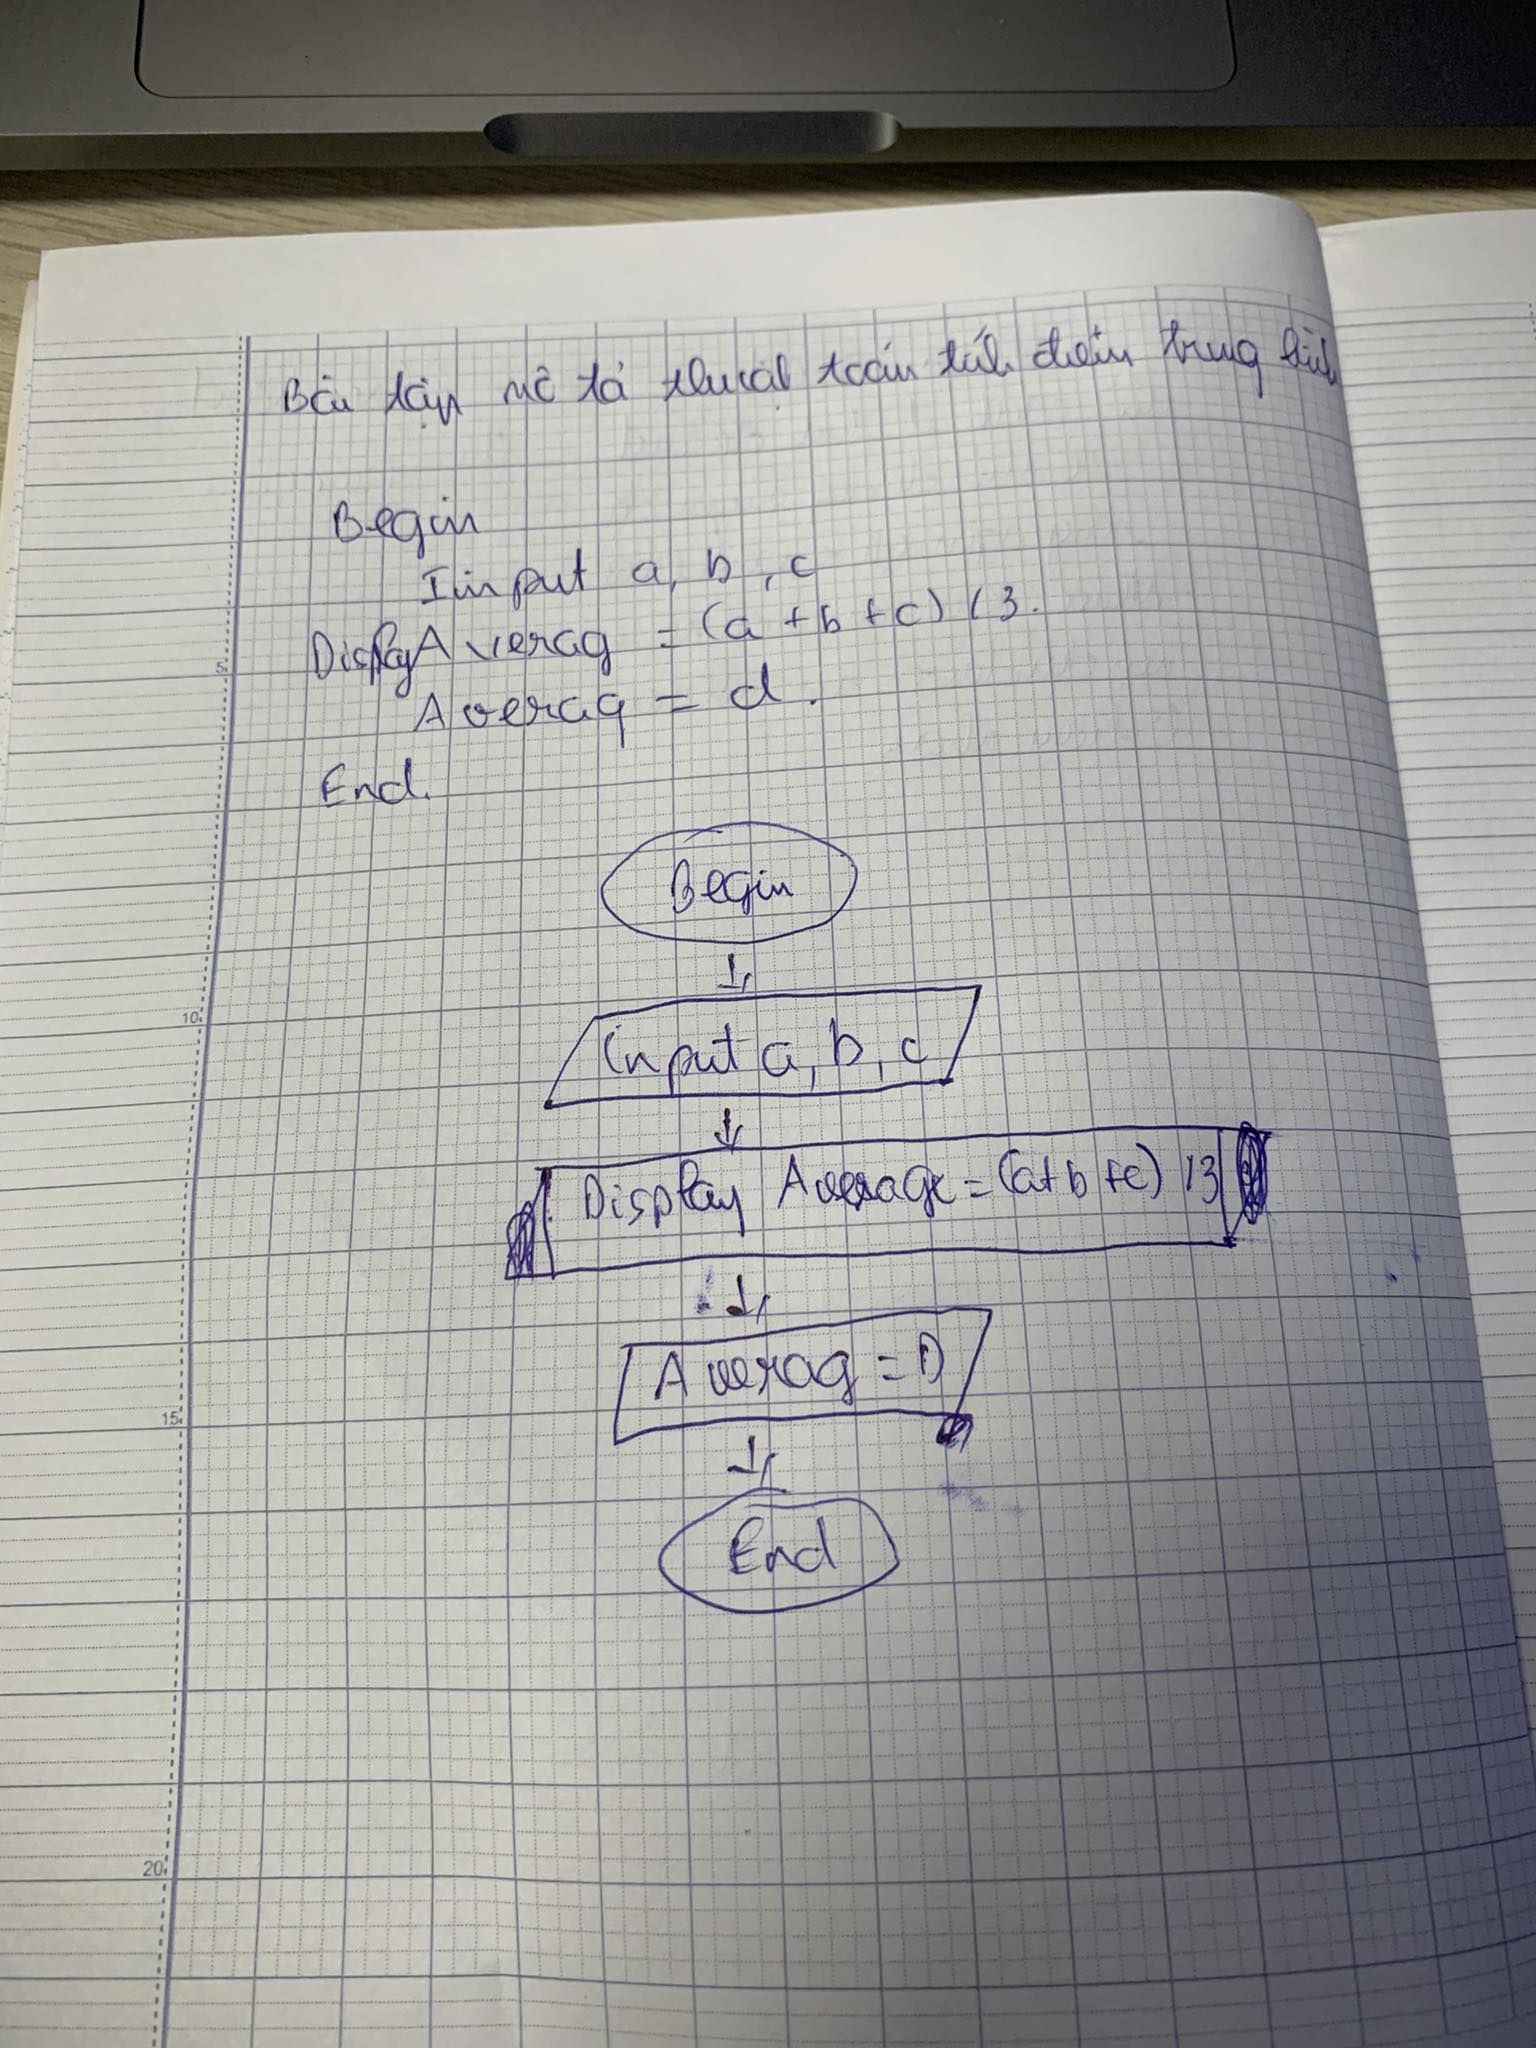 Bài tập mô tả thuật toán tính điểm trung bình
Begin
Iinput a, b, c
Display Averag = (a + b + c) / 3.
Averag = d.
End.
Begin
Input a, b, c
Display Average = (a+b+c) /3
Averag = D
End
5
10
15
20